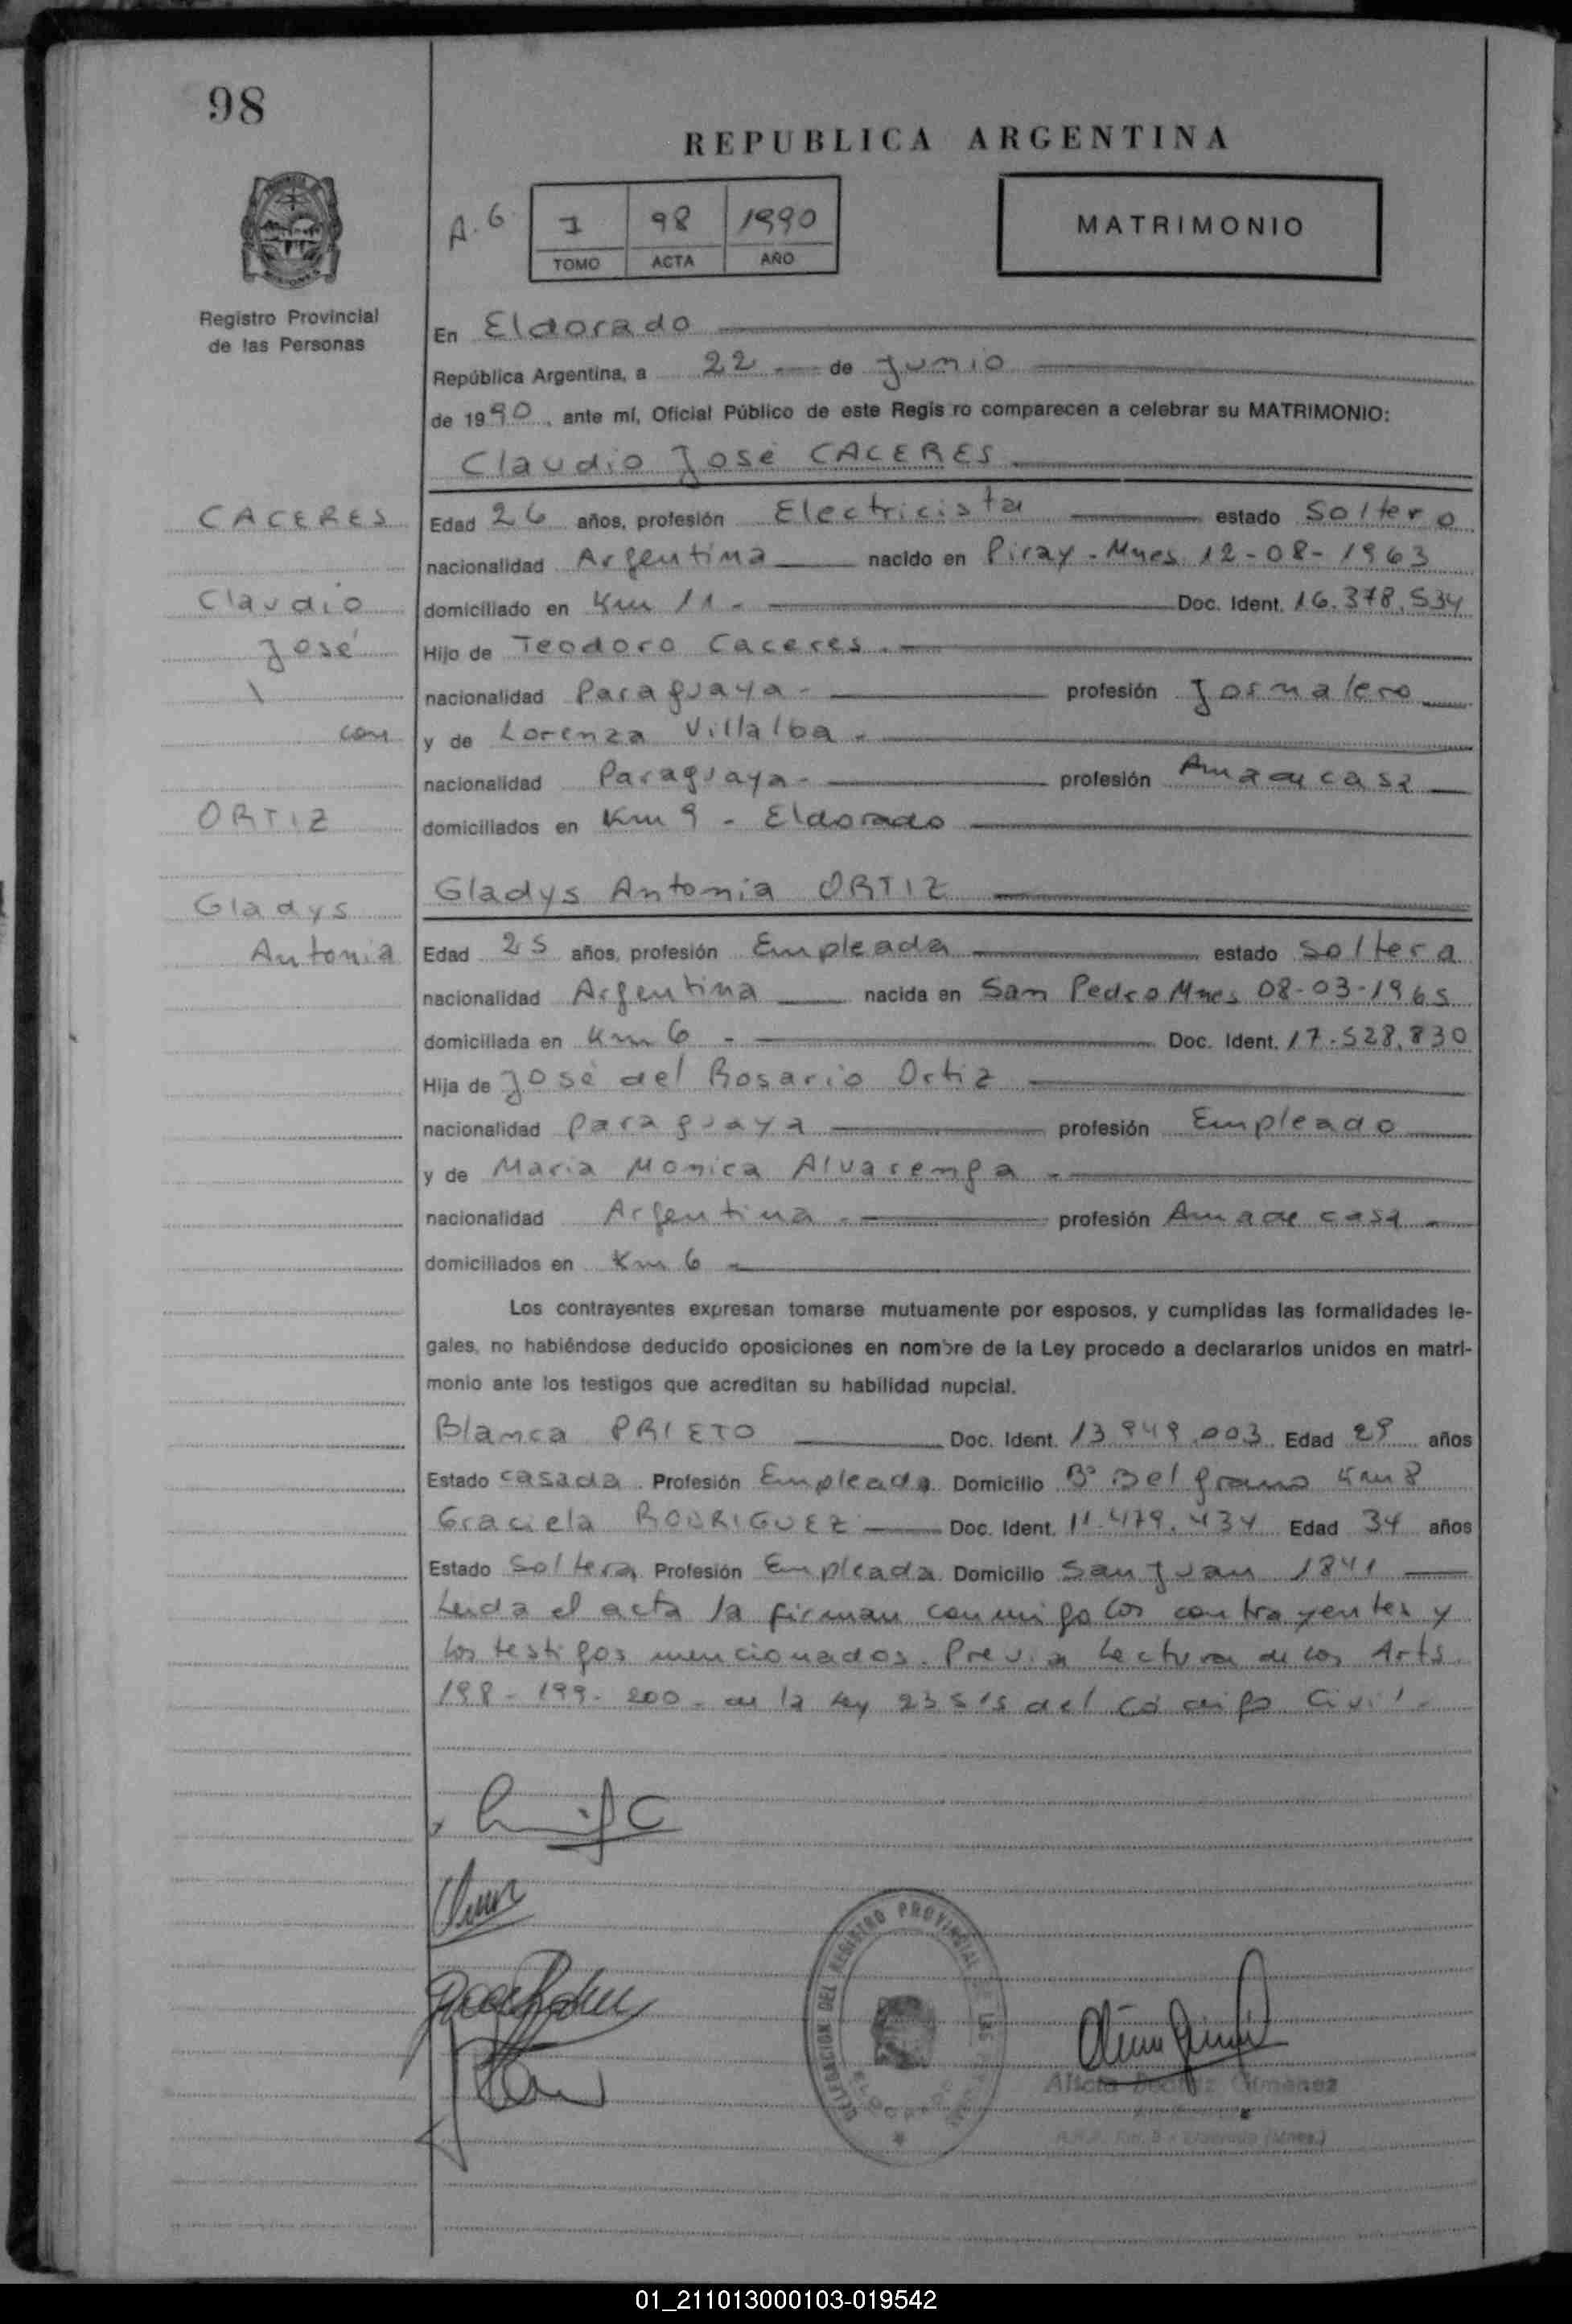 98
REPUBLICA ARGENTINA
A. 6
1 98 1990
TOMO ACTA AÑO
MATRIMONIO
Registro Provincial
de las Personas
En Eldorado
República Argentina, a 22 de Junio
de 1990, ante mí, Oficial Público de este Regis ro comparecen a celebrar su MATRIMONIO:
Claudio José CACERES
CACERES
Claudio
José
con
ORTIZ
Gladys
Antonia
Edad 26 años, profesión Electricista estado Soltero
nacionalidad Argentina nacido en Piray - Mnes 12-08-1963
domiciliado en Km 11 - Doc. Ident. 16.378.534
Hijo de Teodoro Caceres.
nacionalidad Paraguaya - profesión Jornalero
y de Lorenza Villalba -
nacionalidad Paraguaya - profesión Ama de casa
domiciliados en Km 9 - Eldorado
Gladys Antonia ORTIZ
Edad 25 años, profesión Empleada estado soltera
nacionalidad Argentina nacida en San Pedro Mnes 08-03-1965
domiciliada en Km 6 - Doc. Ident. 17.528.830
Hija de José del Rosario Ortiz
nacionalidad paraguaya profesión Empleado
y de Maria Monica Alvarenga -
nacionalidad Argentina - profesión Ama de casa -
domiciliados en Km 6 -
Los contrayentes expresan tomarse mutuamente por esposos, y cumplidas las formalidades le-
gales, no habiéndose deducido oposiciones en nombre de la Ley procedo a declararlos unidos en matri-
monio ante los testigos que acreditan su habilidad nupcial.
Blanca PRIETO Doc. Ident. 13.949.003 Edad 29 años
Estado casada. Profesión Empleada Domicilio Bº Belgrano Km 8
Graciela RODRIGUEZ Doc. Ident. 11.479.434 Edad 34 años
Estado Soltera Profesión Empleada Domicilio San Juan 1841
Leida el acta la firman conmigo los contrayentes y
los testigos mencionados. Previa Lectura de los Arts.
198 - 199 - 200 - de la Ley 23515 del Código Civil -
DELEGACION DEL REGISTRO PROVINCIAL DE LAS
ELDORADO
Alicia Beatriz Gimenez
01_211013000103-019542